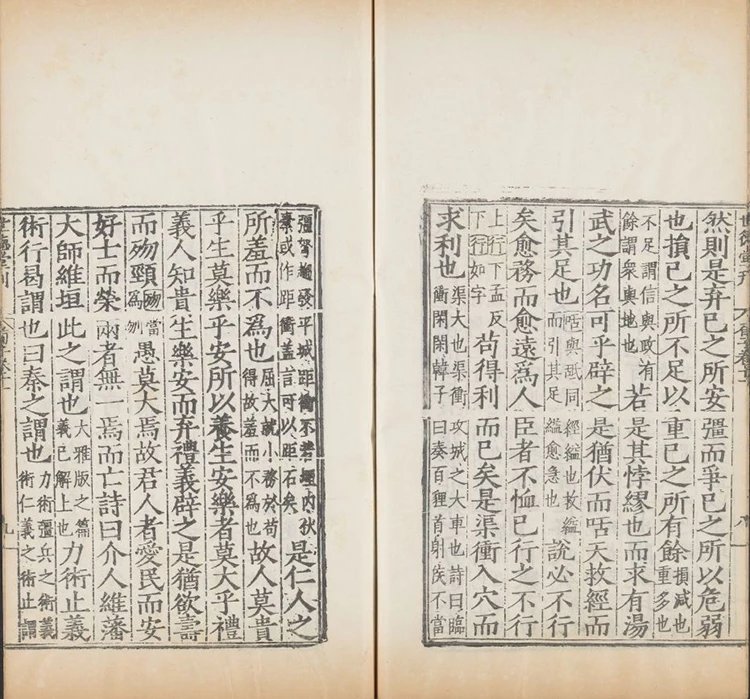 然則是弃己之所安彊而爭己之所以危弱
也損己之所不足以重己之所有餘損減也重多也
不足謂信與政有餘謂衆與地也若是其悖繆也而求有湯
武之功名可乎辟之是猶伏而咶天救經而
引其足也咶與䑛同經縊也救縊而引其足縊愈急也說必不行
矣愈務而愈遠爲人臣者不恤己行之不行
上行下孟反下行如字苟得利而已矣是渠衝入穴而
求利也渠大也渠衝攻城之大車也詩曰臨衝閑閑韓子曰奏百狸首射侯不當
彊弩趨發平城距衝不若堙內伏橐或作距衝蓋言可以距石矣是仁人之
所羞而不爲也屈大就小務於苟得故羞而不爲也故人莫貴
乎生莫樂乎安所以養生安樂者莫大乎禮
義人知貴生樂安而弃禮義辟之是猶欲壽
而歾頸歾當爲刎愚莫大焉故君人者愛民而安
好士而榮兩者無一焉而亡詩曰介人維藩
大師維垣此之謂也大雅版之篇義已解上也力術止義
術行曷謂也曰秦之謂也力術彊兵之術義術仁義之術止謂